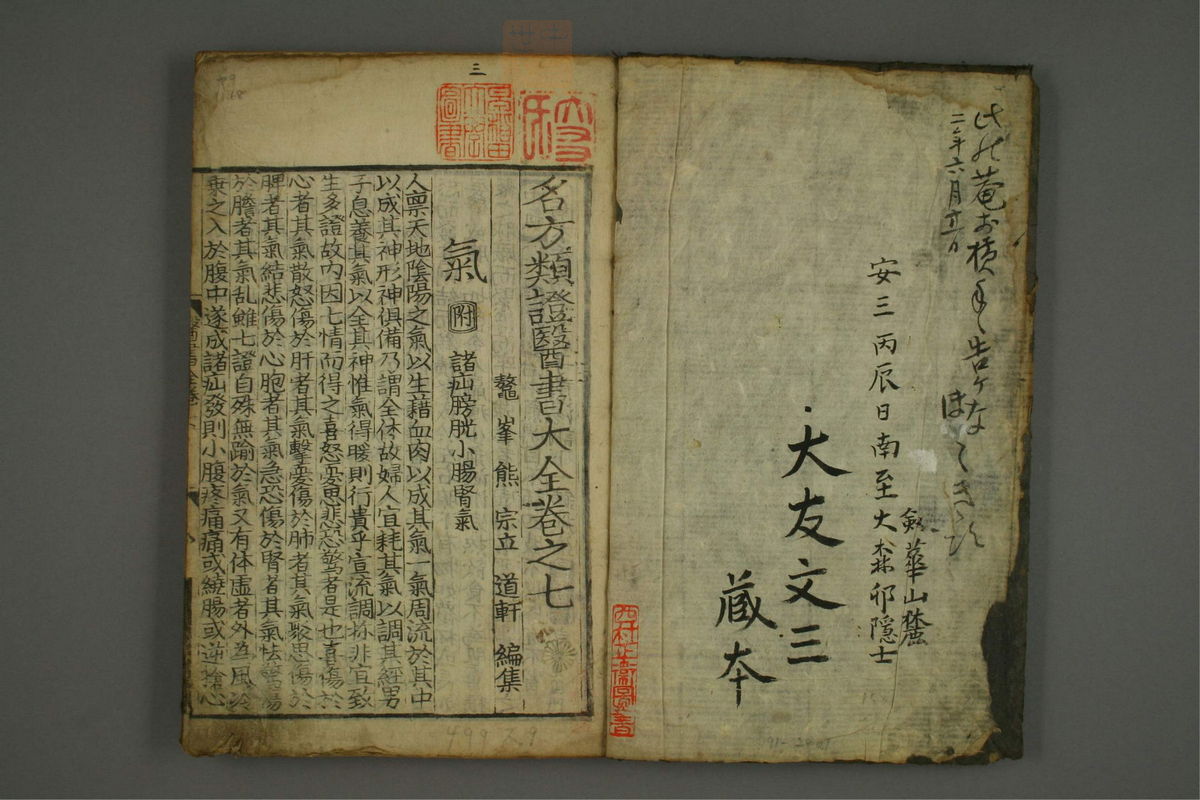 二年六月
安三丙辰日南至大森邨隠士
劔華山麓
大友文三
蔵本
三
名方類證醫書大全卷之七
鼇峯熊宗立道軒編集
氣 附 諸疝膀胱小腸腎氣
人禀天地陰陽之氣以生藉血肉以成其氣一氣周流於其中
以成其神形神俱備乃謂全体故婦人宜耗其氣以調其經男
子息養其氣以全其神惟氣得暖則行貴乎宣流調抺非宜致
生多證故内因七情而得之喜怒憂思悲恐驚者是也喜傷於
心者其氣散怒傷於肝者其氣擊憂傷於肺者其氣聚思傷於
脾者其氣結悲傷於心胞者其氣急恐傷於腎者其氣怯驚傷
於膽者其氣乱雖七證自殊無踰於氣又有体虛者外為風冷
乗之入於腹中遂成諸疝發則小腹疼痛痛或繞腸或逆搶心
499 2.9